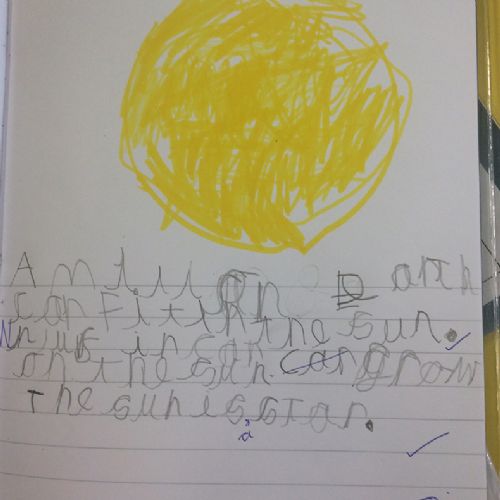 A milion Earth
can Fit in the sun.
can
on the sun. can grow
The sun is star.
a